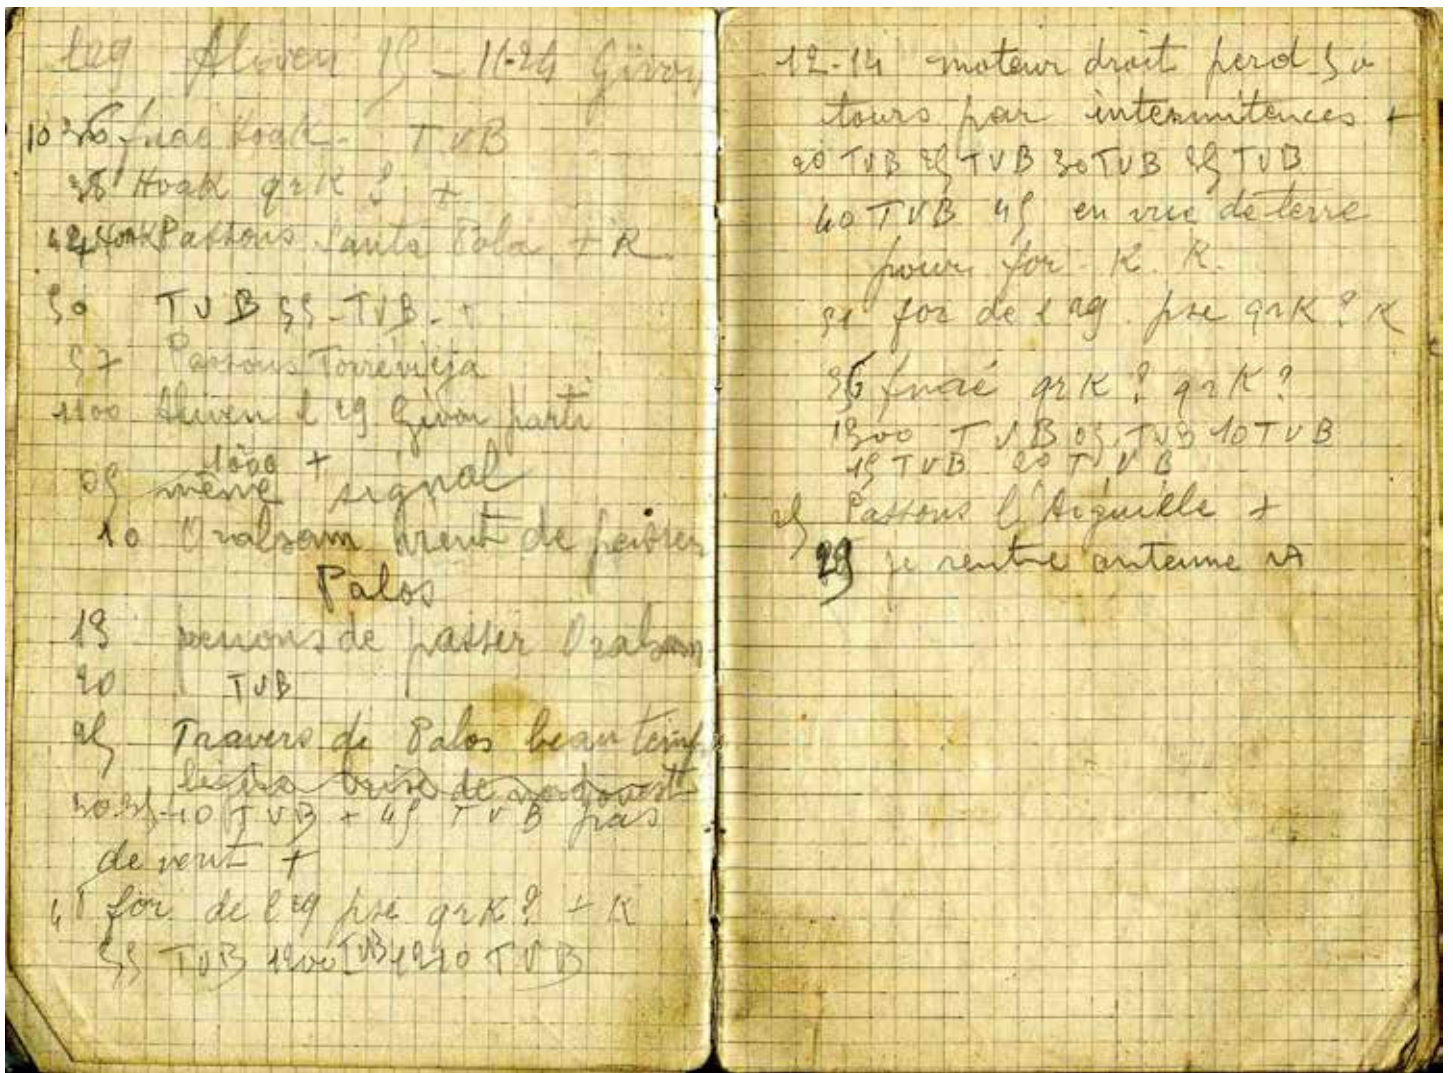 leg Aliven 15 - 11-24 Givon
10 30 fnaé Hoak. TVB
38 Hoak qrK ? +
42 Hoak Passons Santa Pola + R
50 TVB 55 - TVB - +
57 Passons Torrevieja
1100 Aliven l eg Givon parti
1000 +
05 même signal
10 Oralsam vient de passer
Palos
19 venons de passer Oralsam
20 TVB
25 Travers de Palos beau temps
brise de nord ouest
30-35-40 TVB + 45 TVB pas
de vent +
48 for de l eg pse qrK? + K
55 TVB 1200 TVB 1210 TVB
12-14 moteur droit perd 50
tours par intermitences +
20 TVB 25 TVB 30 TVB 35 TVB
40 TVB 45 en vue de terre
pour for K. K.
51 for de l eg. pse qrK ? K
56 fnaé qrK ? qrK ?
1300 TVB 05 TVB 10 TVB
15 TVB 20 TVB
25 Passons l'Aiguille +
29 je rentre antenne VA